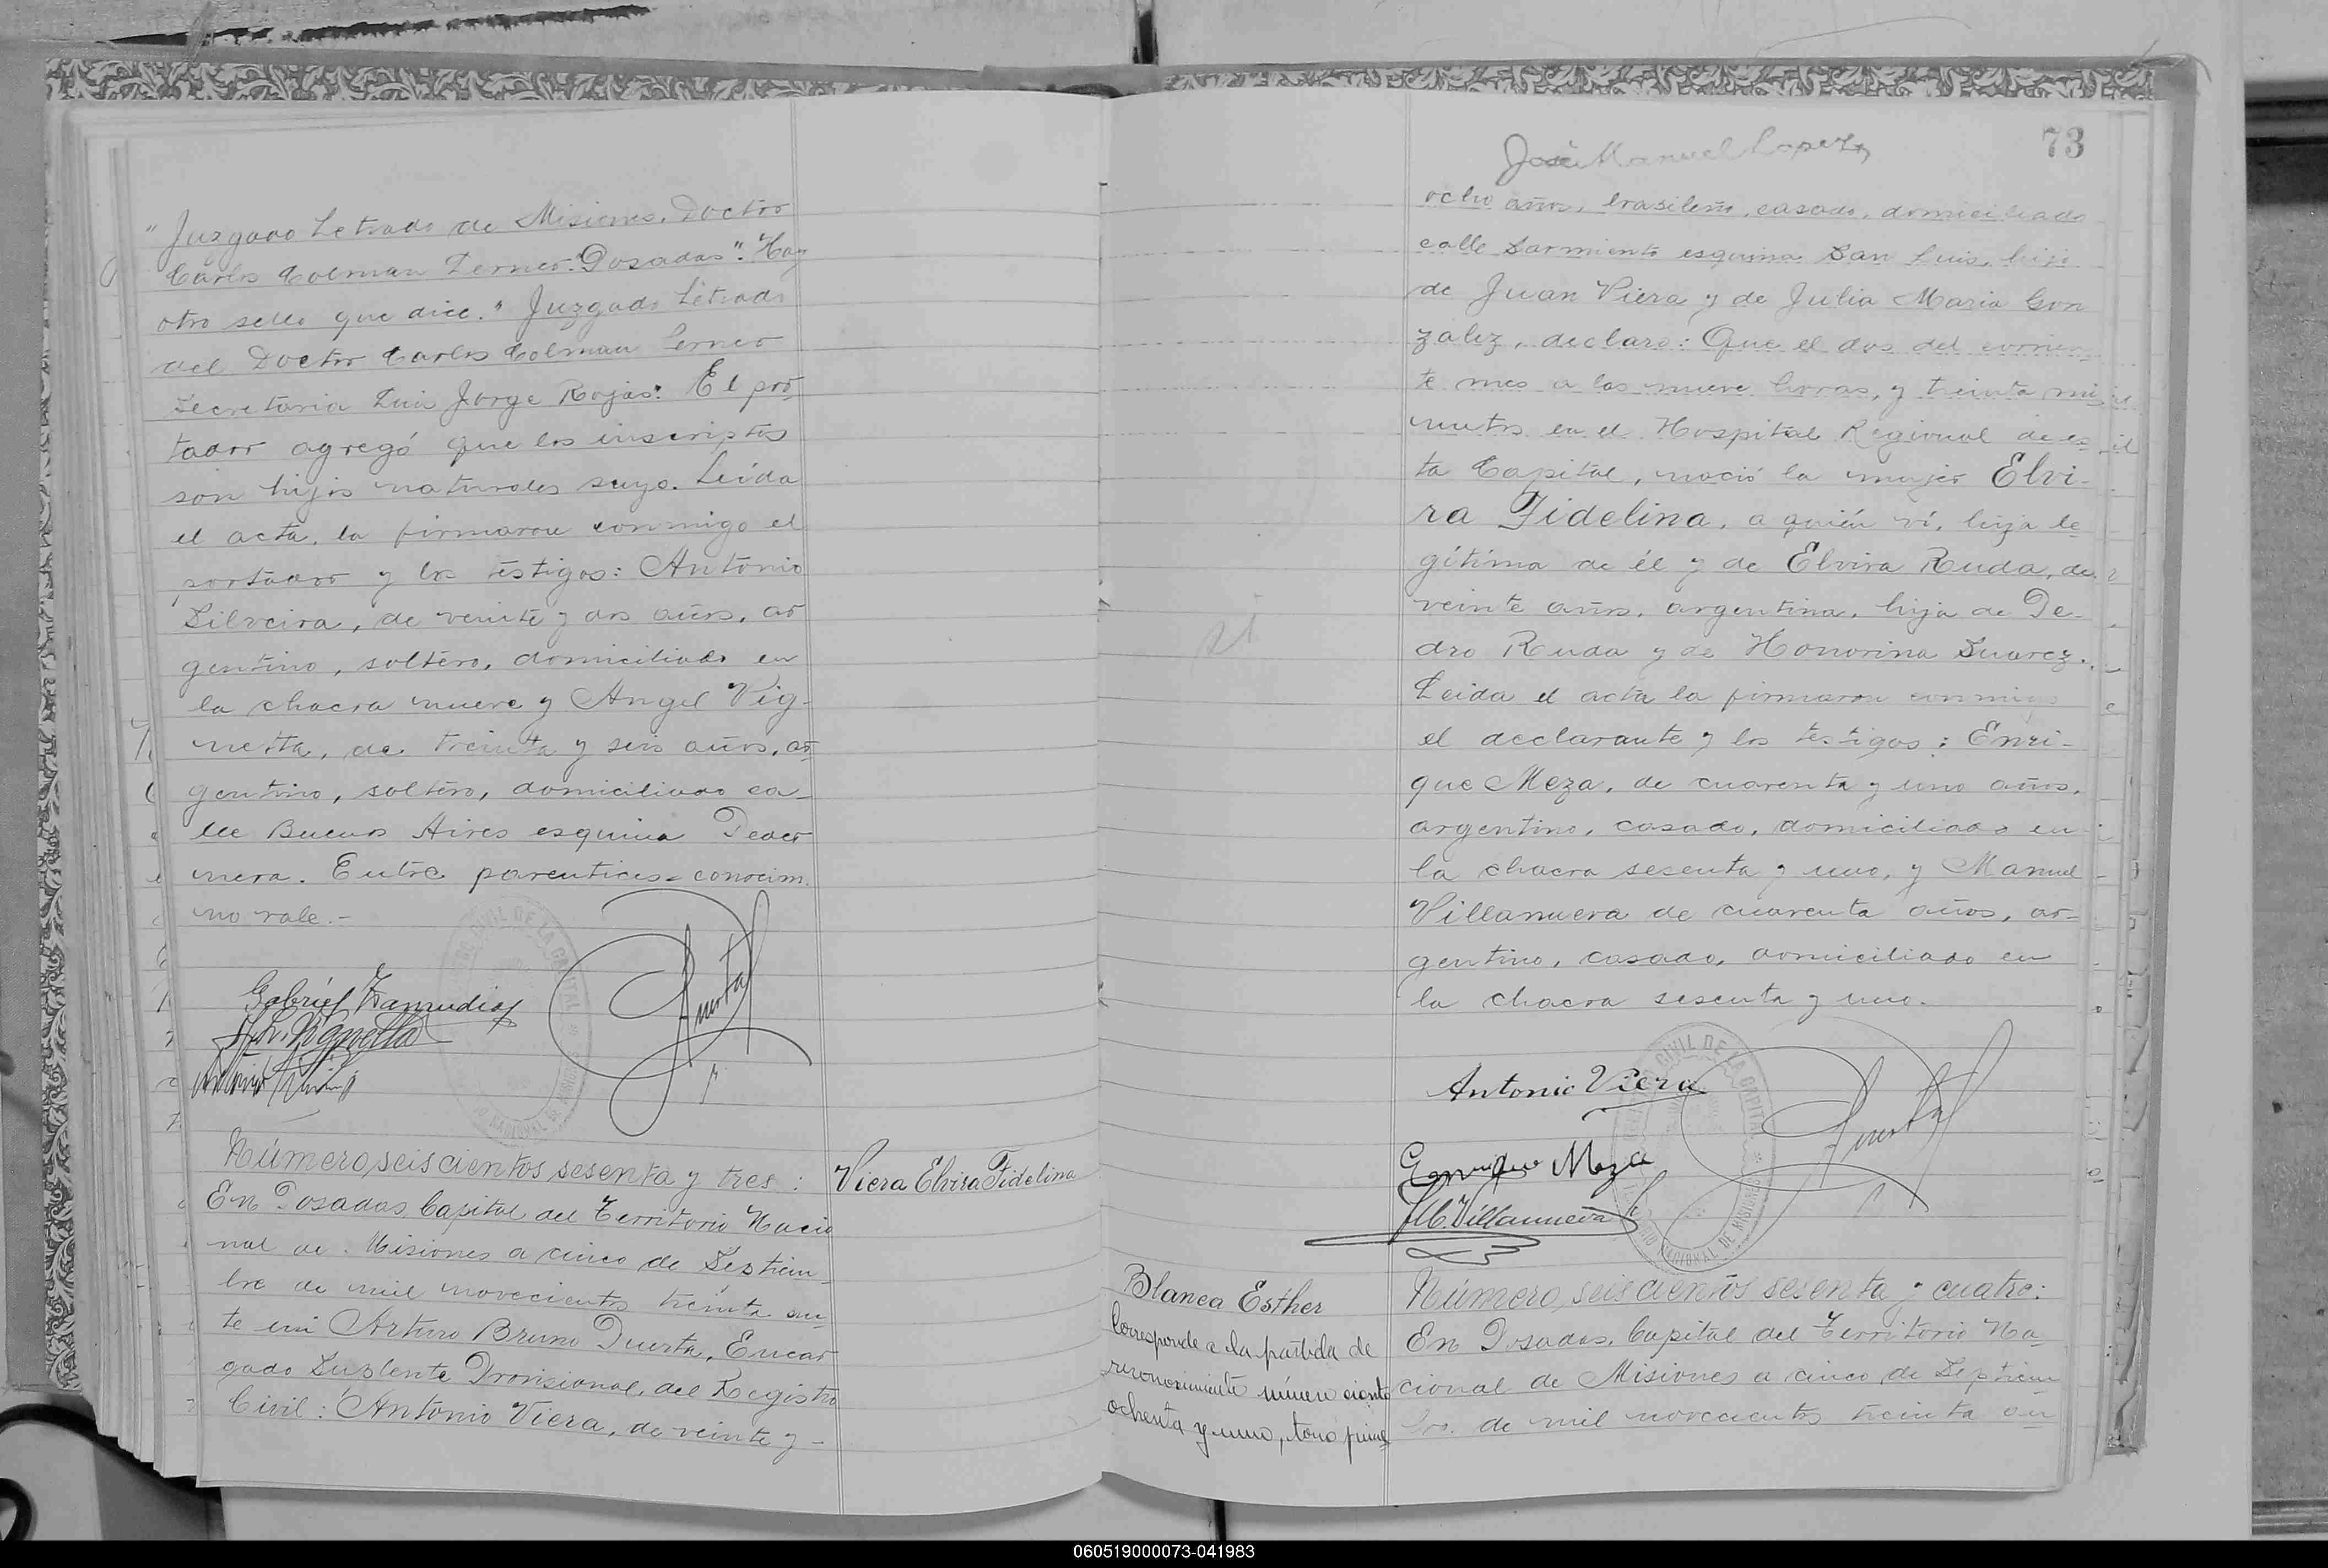 "Juzgado Letrado de Misiones. Doctor
Carlos Colman Lerner. Posadas". Hay
otro sello que dice. "Juzgado Letrado
del Doctor Carlos Colman Lerner
Secretaria Luis Jorge Rojas". El por
tador agregó que los inscriptos
son hijos naturales suyo. Leída
el acta, la firmaron conmigo el
portador y los testigos: Antonio
Silveira, de veinte y dos años, ar
gentino, soltero, domiciliado en
la chacra nueve y Angel Vig-
netta, de treinta y seis años, ar
gentino, soltero, domiciliado ca-
lle Buenos Aires esquina Peder
nera. Entre parentices = conocim.
no vale.-
Gabriel Zamudio
Puerta
Número, seiscientos sesenta y tres:
Viera Elvira Fidelina
En Posadas, Capital del Territorio Nacio
nal de Misiones a cinco de Septiem-
bre de mil novecientos treinta an-
te mi Arturo Bruno Puerta, Encar
gado Suplente Provisional, del Registro
Civil: Antonio Viera, de veinte y -
José Manuel Lopez
73
ocho años, brasileño, casado, domiciliado
calle Sarmiento esquina San Luis, hijo
de Juan Viera y de Julia Maria Gon
zalez, declaro: Que el dos del corrien-
te mes a las nueve horas, y treinta mi-
nutos en el Hospital Regional de es-
ta Capital, nació la mujer Elvi-
ra Fidelina, a quién ví, hija le-
gítima de él y de Elvira Ruda, de
veinte años, argentina, hija de Pe-
dro Ruda y de Honorina Suarez.
Leida el acta la firmaron conmigo
el declarante y los testigos: Enri-
que Meza, de cuarenta y uno años,
argentino, casado, domiciliado en
la chacra sesenta y uno, y Manuel
Villanueva de cuarenta años, ar-
gentino, casado, domiciliado en
la chacra sesenta y uno.
Antonio Viera
Puerta
Enrique Meza
M. Villanueva
Blanca Esther
Corresponde a la partida de
reconocimiento número ciento
ochenta y uno, tomo prime
Número, seiscientos sesenta y cuatro:
En Posadas, Capital del Territorio Na-
cional de Misiones a cinco de Septiem
bre de mil novecientos treinta an
060519000073-041983